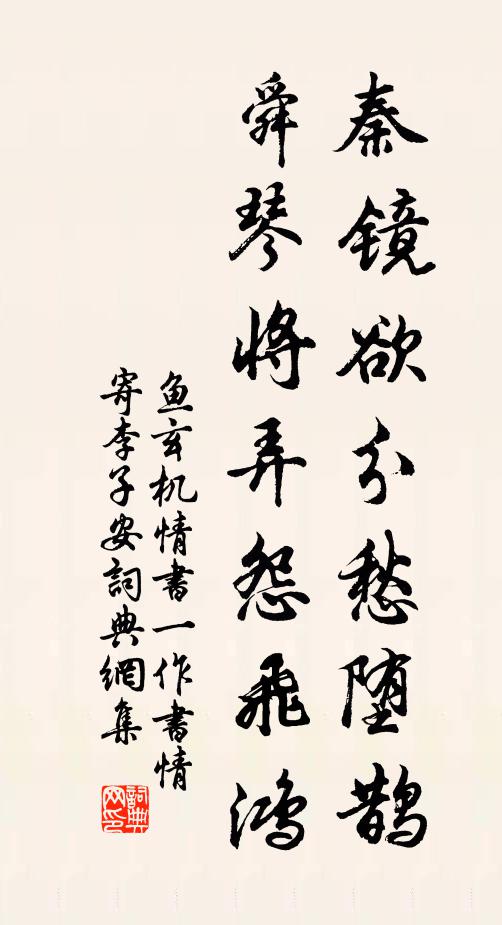 秦镜欲分愁堕鹊
舜琴将弄怨飞鸿
鱼玄机情書一作書情
寄李子安詞典網集
詞典网印